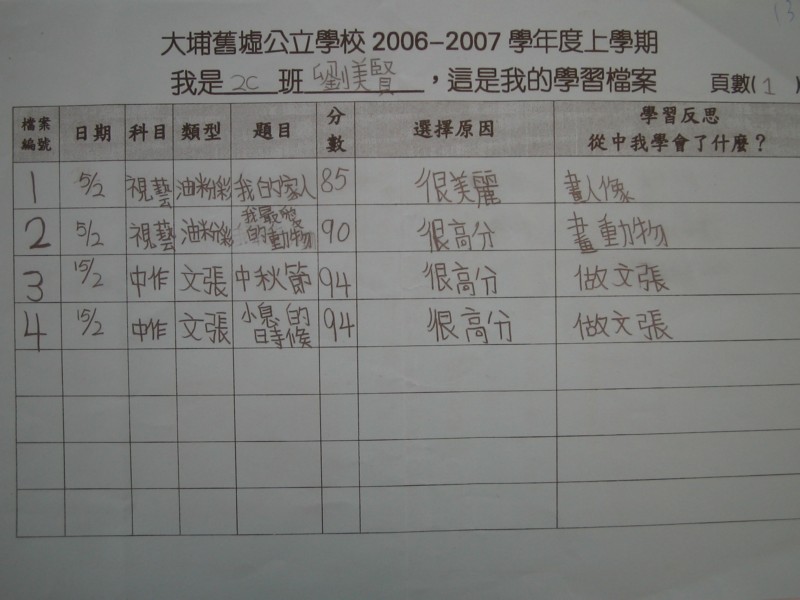 13
大埔舊墟公立學校 2006-2007 學年度上學期
我是 2C 班 劉美賢 ，這是我的學習檔案 頁數( 1 )
檔案編號 日期 科目 類型 題目 分數 選擇原因 學習反思 從中我學會了什麼？
1 5/2 視藝 油粉彩 我的家人 85 很美麗 畫人像
2 5/2 視藝 油粉彩 我最愛的動物 90 很高分 畫動物
3 15/2 中作 文張 中秋節 94 很高分 做文張
4 15/2 中作 文張 小息的時候 94 很高分 做文張